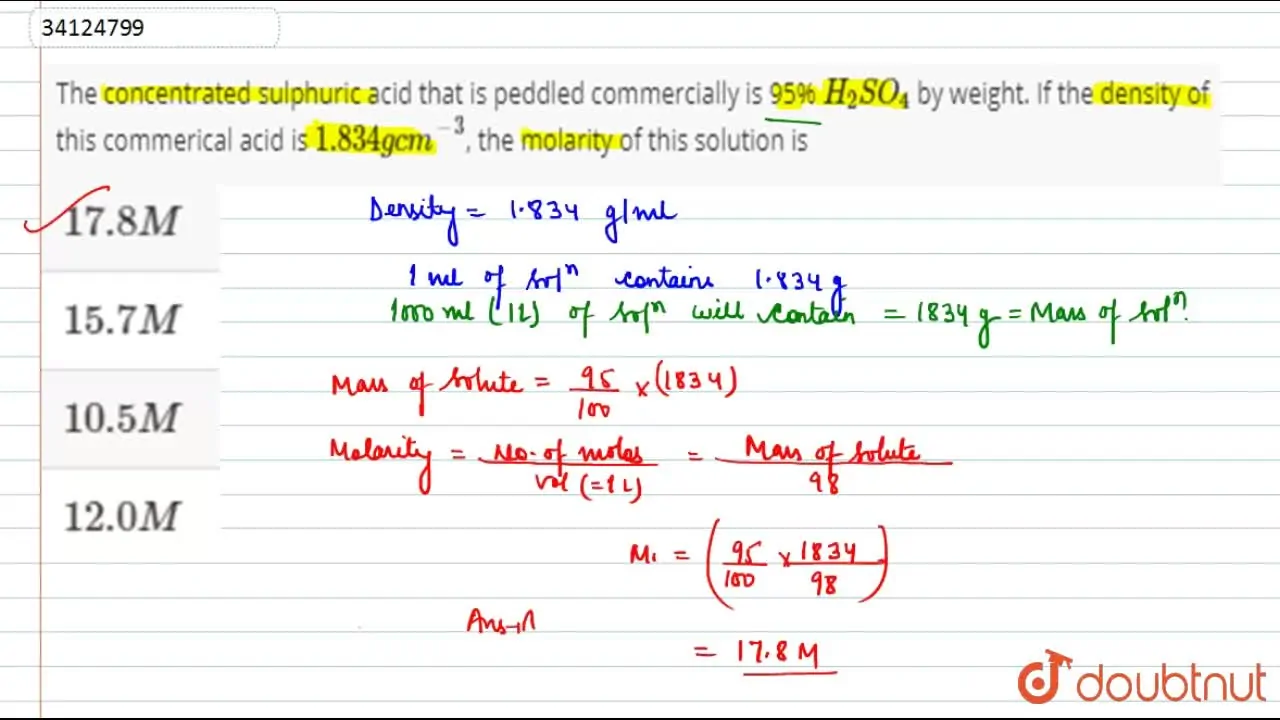 34124799
The concentrated sulphuric acid that is peddled commercially is 95% H₂SO₄ by weight. If the density of
this commerical acid is 1.834gcm⁻³, the molarity of this solution is
17.8M
15.7M
10.5M
12.0M
Density = 1.834 g/ml
1 ml of solⁿ contains 1.834 g
1000 ml (1L) of solⁿ will contain = 1834 g = Mass of solⁿ.
Mass of solute = 95/100 × (1834)
Molarity = No. of moles / Vol (=1L) = Mass of solute / 98
M₁ = (95/100 × 1834/98)
Ans→A
= 17.8 M
doubtnut